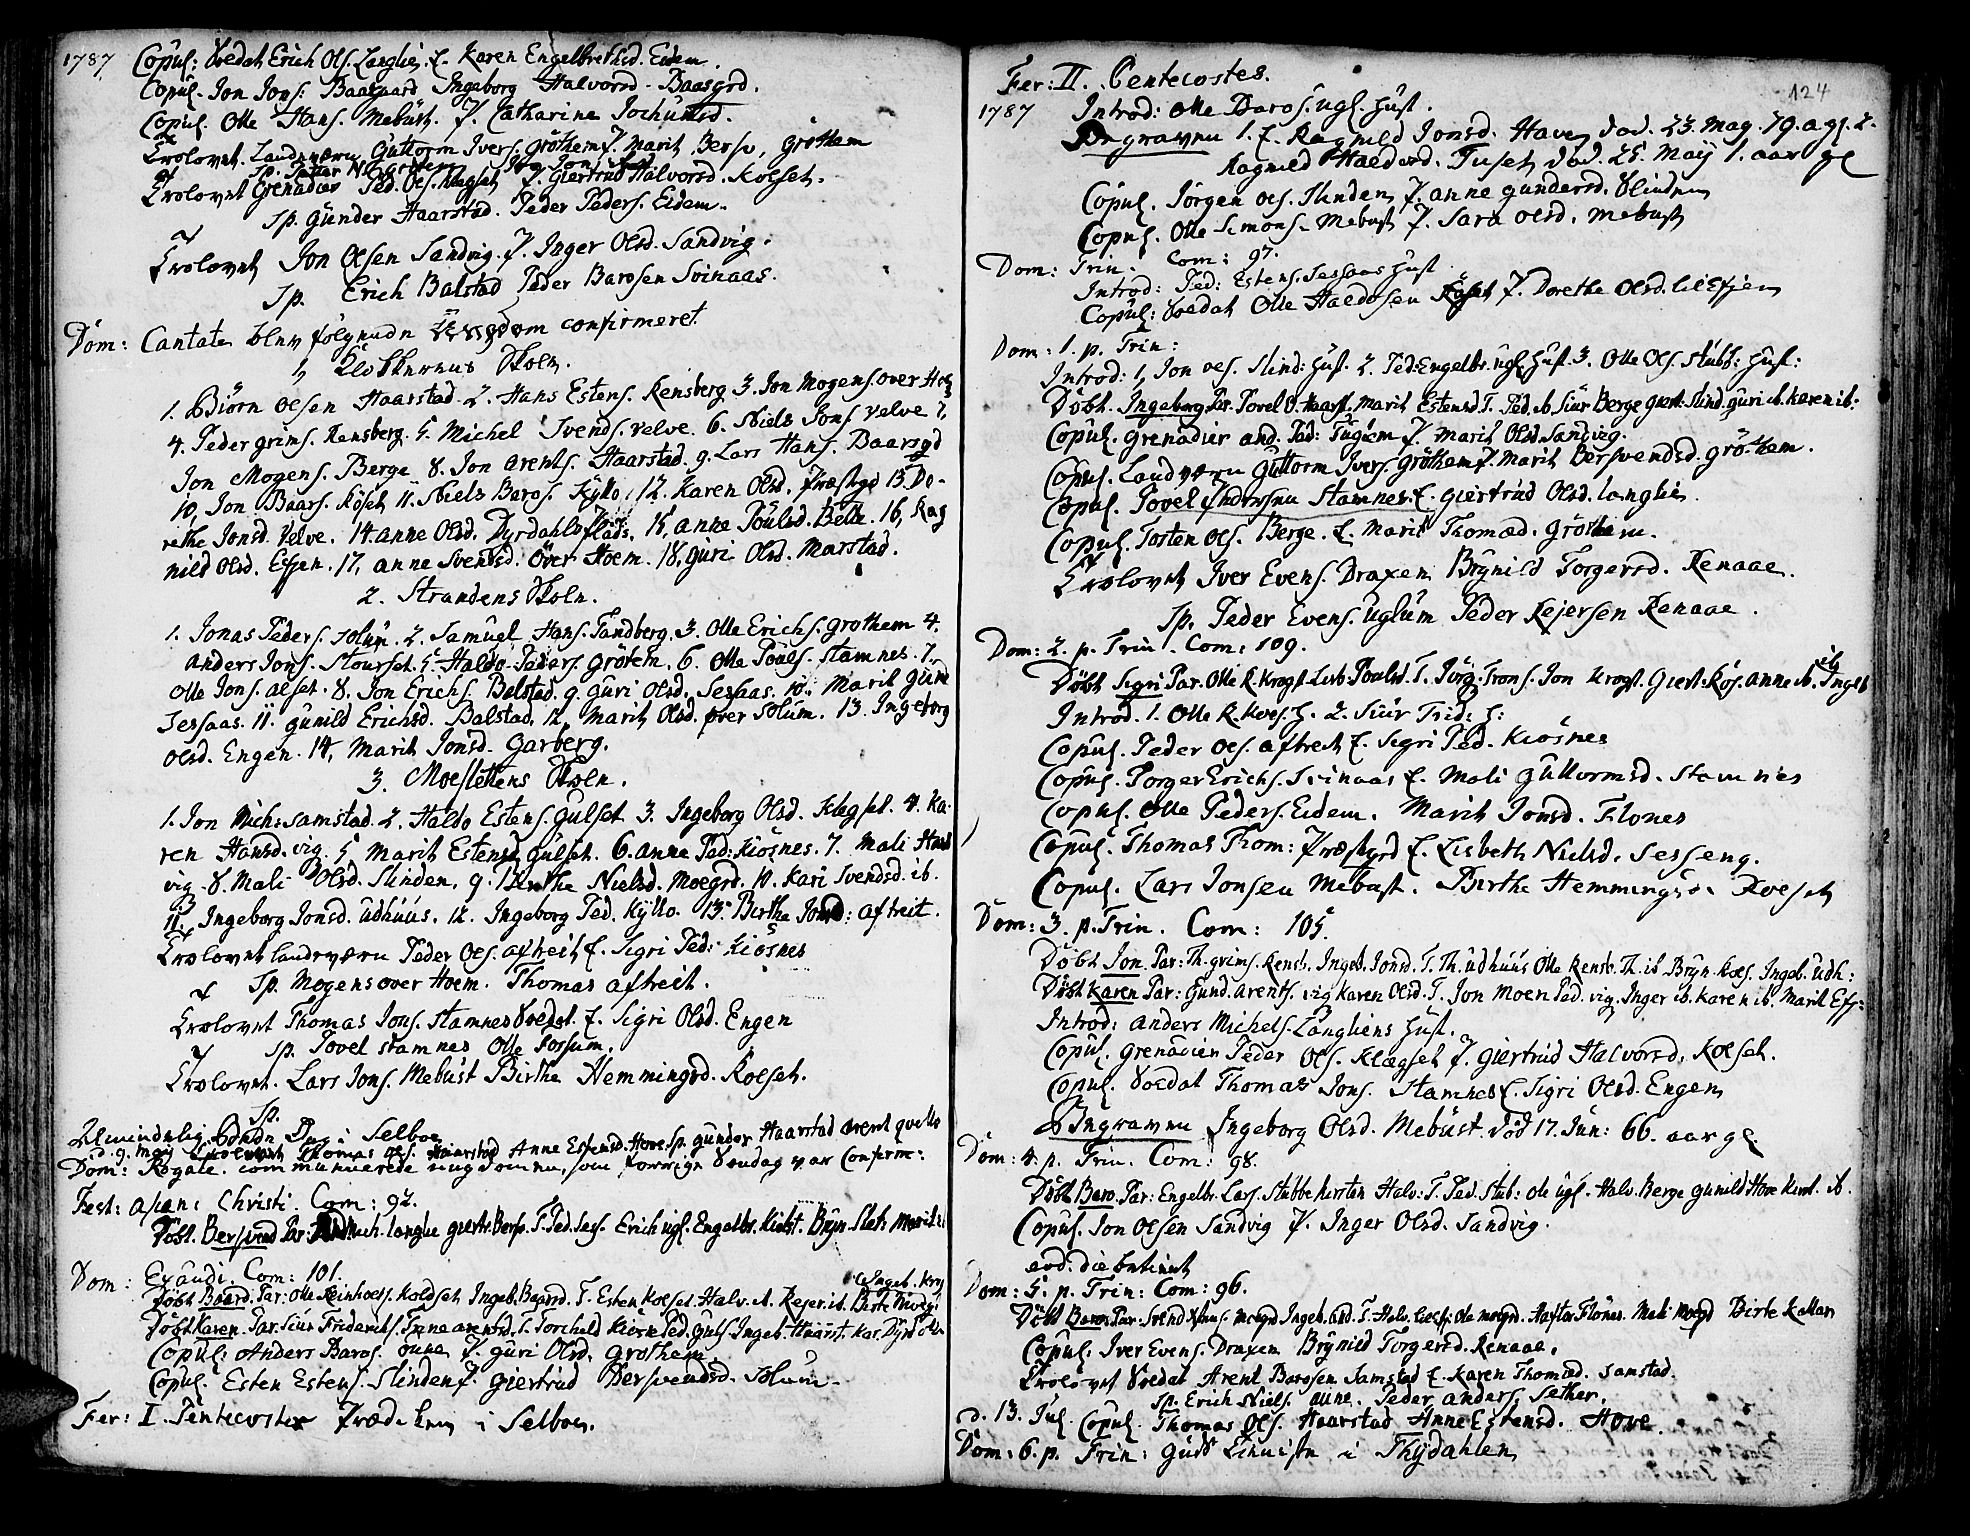 1787 Copul: Soldat Erich Ols. Langlie, &. Karen Engelbrethsd. Eidem.
Copul. Jon Jons. Baasgaard Ingeborg Halvorsd. Baasgrd.
Copul. Olle Hans. Mebust. & Catharina Jochumsd.
Trolovet. Landeværn Guttorm Ivers. Grøthem & Marit Bersv. Grøthem
Sp. Peder
Trolovet Grenadier Ped. Ols. Klegset & Giertrud Halvorsd. Kolset.
Sp. Gunder Haarstad. Peder Peders. Eidem.
Trolovet Jon Olsen Sandvig. & Inger Olsd. Sandvig.
Sp. Erich Balstad Peder Barosen Svinaas.
Dom: Cantate blev følgende Ungdom confirmeret.
1, Klokkerens Skole.
1. Biørn Olsen Haarstad. 2. Hans Estens. Rensberg. 3. Jon Mogens. over Hoe
4. Peder Grims. Rensberg. 5. Michel Svends. Velve. 6. Niels Jons. Velve 7,
Jon Mogens. Berge 8. Jon Arents. Haarstad. 9. Lars Hans. Baarsgd
10, Jon Baars. Køset 11. Niels Baros. Kyllo. 12. Karen Olsd. Præstgd 13. Do-
rethe Jonsd. Velve. 14. Anne Olsd. Dyrdahls Plads. 15, Anne Poulsd. Belle. 16, Rag
nild Olsd. Essen. 17, Anne Svendsd. Over Hoem. 18. Guri Olsd. Marstad.
2. Strandens Skole.
1. Jonas Peders. Solum. 2. Samuel Hans. Tandberg. 3. Olle Erichs. Grothem 4.
Anders Jons. Stourset. 5. Haldo Peders. Grøtem. 6. Olle Povels. Stamnes. 7.
Olle Jons. Alset. 8. Jon Erichs. Balstad. 9. Guri Olsd. Sessaas. 10. Marit Gund
Sessaas. 11. Gunild Erichsd. Balstad. 12. Marit Olsd. over Solum. 13. Ingeborg
Olsd. Engen. 14, Marit Jonsd. Garberg.
3. Moeslettens Skole.
1. Jon Mich: Samstad. 2. Haldo Estens. Gulset. 3. Ingeborg Olsd. Klegset. 4. Ka-
ren Hansd. Vig. 5 Marit Estensd. Gulset. 6. Anne Ped: Kiøsnes. 7. Mali
Vig. 8. Mali Olsd. Slinden. 9. Birthe Nielsd. Moegrd. 10. Kari Svendsd. ib.
11. Ingeborg Jonsd. Udhuus. 12. Ingeborg Ped. Kyllo. 13. Birthe Jonsd: Aftreit.
Trolovet Landeværn Peder Ols. Aftreit & Sigri Ped: Kiøsnes
Sp. Mogens over Hoem. Thomas Aftreit.
Trolovet Thomas Jons. Stamnes Soldat. &. Sigri Olsd. Engen
Sp. Povel Stamnes Olle Fossum.
Trolovet. Lars Jons. Mebust Birthe Hemmingsd. Rolset.
Sp.
Almindelig Bededag i Selboe
d. 9. Maji Trolovet Thomas Ols. Haarstad Anne Estensd. Hove. Sp. Gunder Haarstad Arent
Dom: Rogate. communicerede Ungdommen, som forrige Søndag var Confirm:
Fest: Ascens: Christi. Com: 92.
Døbt. Bersvend Par: Langlie Giertr. Bersv. T. Ped. Sess. Erich Ugl. Engelbr. Bryn. Slet. Marit
Dom: Exaudi. Com: 101.
Døbt Baard. Par: Olle Koldset Ingeb. Baarsd. T. Esten Kolset. Halv. ib. Rejer. ib. Birte Moegr. Ingeb.
Døbt Karen. Par. Siur Friderichs. T. Torchild Ped. Guls. Ingeb. Haarst. Kar.
Copul. Anders Baros. Aune & Guri Olsd. Grothem
Copul. Esten Estens. Slinden & Giertrud Bersvendsd. Solum.
Fer: I. Pentecostes Prædiken i Selboe.
124
Fer: II. Pentecostes.
1787 Introd: Olle Baros. Ugl. Hust.
Begraven 1. &. Ragnild Jonsd. Haven død. 23. Maj. 79. a. gl. 2.
Ragnild Haldosd. Tuset død. 25. Maij 1. aar gl
Copul. Jørgen Ols. Slinden & Anne Gundersd. Slinden
Copul. Olle Simons. Mebust & Sara Olsd. Mebust
Dom: Trin. Com: 97.
Introd: Ped: Estens. Sessaas Hust
Copul: Soldat Olle Haldosen Køset & Dorethe Olsd.
Dom: 1. p. Trin:
Introd: 1, Jon Ols. Slind: Hust. 2. Ped: Engelbr. Ugl Hust 3. Olle Ols. Stubb: Hust:
Døbt. Ingeborg Par. Povel O. Haarst. Marit Estensd. T. Ped. ib Siur Berge Giert. Slind. Guri ib. Karen ib:
Copul. Grenadier And. Ped: Fuglem & Marit Olsd. Sandvig.
Copul. Landværn Guttorm Ivers. Grøthem & Marit Bersvendsd. Grøthem.
Copul. Povel Andersen Stamnes & Giertrud Olsd. Langlie.
Copul. Tosten Ols. Berge. &. Marit Thomæd. Grøthem.
Trolovet Iver Evens. Draxen Brynild Torgersd. Renaae.
Sp. Peder Evens. Uglum Peder Rejersen Renaae.
Dom: 2. p. Trin. Com: 109.
Døbt Sigri Par. Olle R. Krogst. Lisb. Poulsd. T. Jørg. Trons. Jon Krogst. Giert. Køs. Anne ib. Ingeb ib
Introd. 1. Olle R. H. 2. Siur Frid: H:
Copul. Peder Ols. Aftreit &. Sigri Ped. Kiøsnes
Copul. Torger Erichs. Svinaas &. Mali Guttormsd. Stamnes
Copul. Olle Peders. Eidem. Marit Jonsd. Flones
Copul. Thomas Thom: Præstgrd &. Lisbeth Nielsd. Sesseng.
Copul. Lars Jonsen Mebust. Birthe Hemmingsd. Rolset
Dom: 3. p. Trin. Com: 105.
Døbt Jon Par: Th. Grims. Rensb. Ingeb. Jonsd. T. Th. Udhuus Olle Rensb. Th. ib Bryn. Køes. Ingeb. Udh:
Døbt Karen Par: Gund. Arents. Vig Karen Olsd. T. Jon Moen Ped. Vig. Inger ib. Karen ib. Marit Ess:
Introd: Anders Michels. Langliens Hust.
Copul. Grenadier Peder Ols. Klægset & Giertrud Halvorsd. Kolset.
Copul. Soldat Thomas Jons. Stamnes &. Sigri Olsd. Engen
Begraven Ingeborg Olsd. Mebust. død 17. Jun: 66. aar gl.
Dom: 4. p. Trin. Com: 98.
Døbt Baro. Par: Engelbr. Lars. Stubbe Kirsten Halv. T. Ped. Stub: Ole Ugl. Halv. Berge Gunild Hove Kirst. ib.
Copul. Jon Olsen Sandvig & Inger Olsd. Sandvig.
Dom: 5. p. Trin: Com: 96.
Døbt Baro Par: Svend Moegrd Ingeb. T. Halv. Ole Moegrd. Flønes. Mali Moegrd Birte
Copul. Iver Evens. Draxen Brynild Torgersd. Renaae.
Trolovet Soldat Arent Barosen Samstad &. Karen Thomæd. Samstad.
Sp. Erich Niels. Aune. Peder Anders. Sether.
d. 13. Jul. Copul. Thomas Ols. Haarstad Anne Estensd. Hove.
Dom: 6. p. Trin: Guds Tieniste i Thydahlen